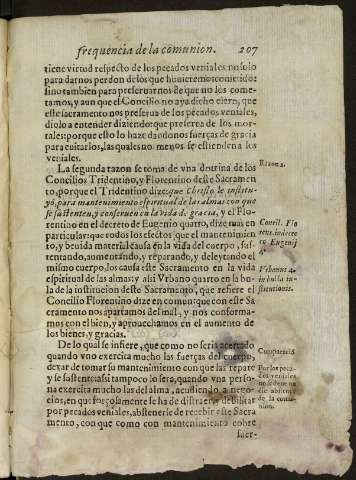 frequencia de la comunion. 207
tiene virtud respecto de los pecados veniales no solo
para darnos perdon de los que huuieremos cometido:
sino tambien para preseruarnos de que no los come-
tamos, y aun que el Concilio no aya dicho claro, que
este sacramento nos preserua de los pecados veniales,
diolo a entender diziendo que preserua de los mor-
tales: porque esto lo haze dandonos fuerças de gracia
para euitarlos, las quales no menos se estienden a los
veniales.
La segunda razon se toma de vna dotrina de los
Concilios Tridentino, y Florentino deste Sacramen
to, porque el Tridentino dize: que Christo le institu-
yó, para mantenimiento espiritual de las almas con que
se sustenten, y conseruen en la vida de gracia, y el Flo-
rentino en el decreto de Eugenio quarto, dize mas en
particular: que todos los efectos que el mantenimien
to, y beuida material causa en la vida del cuerpo, sus-
tentando, aumentando, y reparando, y deleytando el
mismo cuerpo, los causa este Sacramento en la vida
espiritual de las almas: y assi Vrbano quarto en la bu-
la de la institucion deste Sacramento, que refiere el
Concilio Florentino dize en comun: que con este Sa
cramento nos apartamos del mal, y nos conforma-
mos con el bien, y aprouechamos en el aumento de
los bienes, y gracias.
De lo qual se infiere, que como no seria acertado
quando vno exercita mucho las fuerças del cuerpo,
dexar de tomar su mantenimiento con que las repare
y se sustente assi tampoco lo sera, quando vna perso-
na exercita mucho las del alma, acudiendo, a nego-
cios, en que forçosamente se ha de distraer, ò debilitar
por pecados veniales, abstenerse de recebir este Sacra
mento, con que como con mantenimiento cobre
fuer-
Razon 2.
Concil. Flo
ren. in decre
to Eugenij
4.
Vrbanus 4.
in bulla in
stitutionis.
Comparació
Por los peca
dos veniales
no se deue na
die abstener
de la comu-
nion.